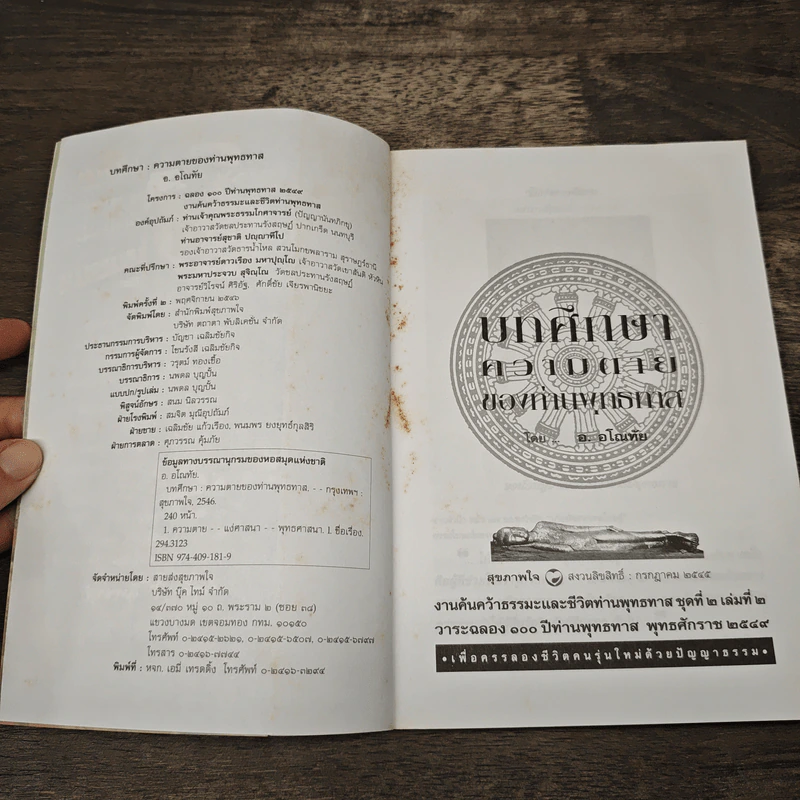 บทศึกษา : ความตายของท่านพุทธทาส
อ. อโณทัย
โครงการ : ฉลอง ๑๐๐ ปีท่านพุทธทาส ๒๕๔๙
งานค้นคว้าธรรมะและชีวิตท่านพุทธทาส
องค์อุปถัมภ์ : ท่านเจ้าคุณพระธรรมโกศาจารย์ (ปัญญานันทภิกขุ)
เจ้าอาวาสวัดชลประทานรังสฤษฎ์ ปากเกร็ด นนทบุรี
ท่านอาจารย์สุชาติ ปญฺญาทีโป
รองเจ้าอาวาสวัดธารน้ำไหล สวนโมกขพลาราม สุราษฎร์ธานี
คณะที่ปรึกษา : พระอาจารย์ดาวเรือง มหาปุญฺโญ เจ้าอาวาสวัดเขาสันติ หัวหิน
พระมหาประจวบ สุจิณฺโณ วัดชลประทานรังสฤษฎ์
อาจารย์วิโรจน์ ศิริอัฐ, ศักดิ์ชัย เจียรพานิชยะ
พิมพ์ครั้งที่ ๒ : พฤศจิกายน ๒๕๔๖
จัดพิมพ์โดย : สำนักพิมพ์สุขภาพใจ
บริษัท ตถาตา พับลิเคชั่น จำกัด
ประธานกรรมการบริหาร : บัญชา เฉลิมชัยกิจ
กรรมการผู้จัดการ : โชนรังสี เฉลิมชัยกิจ
บรรณาธิการบริหาร : วรุตม์ ทองเชื้อ
บรรณาธิการ : นพดล บุญปั๋น
แบบปก/รูปเล่ม : นพดล บุญปั๋น
พิสูจน์อักษร : สนม นิลวรรณ
ฝ่ายโรงพิมพ์ : สมจิต มุณีอุปถัมภ์
ฝ่ายขาย : เฉลิมชัย แก้วเรือง, พนมพร ยงยุทธ์กุลสิริ
ฝ่ายการตลาด : ศุภวรรณ คุ้มภัย
ข้อมูลทางบรรณานุกรมของหอสมุดแห่งชาติ
อ. อโณทัย.
บทศึกษา : ความตายของท่านพุทธทาส. - - กรุงเทพฯ :
สุขภาพใจ, 2546.
240 หน้า.
1. ความตาย - - แง่ศาสนา - - พุทธศาสนา. I. ชื่อเรื่อง.
294.3123
ISBN 974-409-181-9
จัดจำหน่ายโดย : สายส่งสุขภาพใจ
บริษัท บุ๊ค ไทม์ จำกัด
๑๔/๓๗๐ หมู่ ๑๐ ถ. พระราม ๒ (ซอย ๓๘)
แขวงบางมด เขตจอมทอง กทม. ๑๐๑๕๐
โทรศัพท์ ๐-๒๔๑๕-๒๖๒๑, ๐-๒๔๑๕-๖๕๐๗, ๐-๒๔๑๕-๖๗๙๗
โทรสาร ๐-๒๔๑๖-๗๗๔๔
พิมพ์ที่ : หจก. เอมี่ เทรดดิ้ง โทรศัพท์ ๐-๒๔๑๖-๓๒๙๔
บทศึกษา
ความตาย
ของท่านพุทธทาส
โดย อ. อโณทัย
สุขภาพใจ สงวนลิขสิทธิ์ : กรกฎาคม ๒๕๔๕
งานค้นคว้าธรรมะและชีวิตท่านพุทธทาส ชุดที่ ๒ เล่มที่ ๒
วาระฉลอง ๑๐๐ ปีท่านพุทธทาส พุทธศักราช ๒๕๔๙
•เพื่อครรลองชีวิตคนรุ่นใหม่ด้วยปัญญาธรรม•